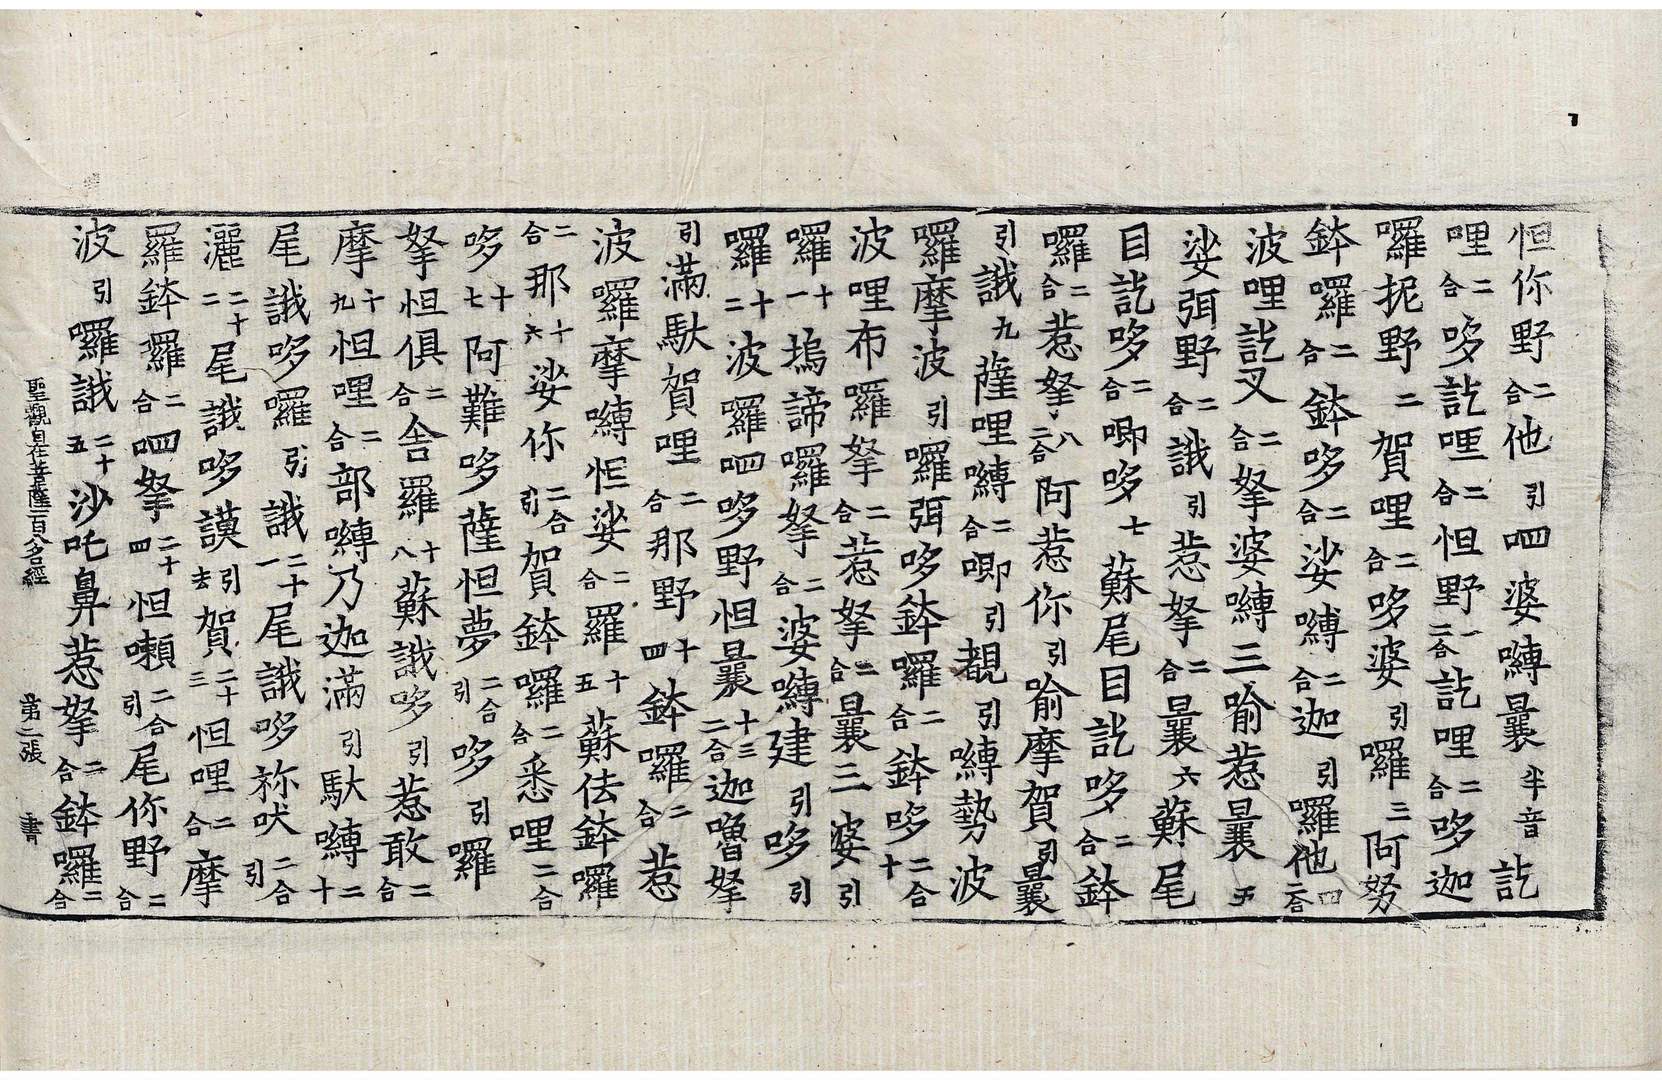 怛你野二合他引呬婆嚩曩半音訖
哩二合哆訖哩二合怛野一二合訖哩二合哆迦
囉抳野二賀哩二合哆婆引囉三阿努
鉢囉二合鉢哆二合娑嚩二合迦引囉他四二合
波哩訖叉二合拏婆嚩三喻惹曩五
娑弭野二合誐引惹拏二合曩六蘇尾
目訖哆二合唧哆七蘇尾目訖哆二合鉢
囉二合惹拏八二合阿惹你引喻摩賀引曩
引誐九薩哩嚩二合唧引覩引嚩勢波
囉摩波引囉弭哆鉢囉二合鉢哆二合十
波哩布囉拏二合惹拏二合曩三婆引
囉十一塢諦囉拏二合婆嚩建引哆引
囉十二波囉呬哆野怛曩十三二合迦嚕拏
引滿馱賀哩二合那野十四鉢囉二合惹
波囉摩嚩怛娑二合羅十五蘇佉鉢囉
二合那十六娑你二合引賀鉢囉二合悉哩二合
哆十七阿難哆薩怛夢二合引哆引囉
拏怛俱二合舍羅十八蘇誐哆引惹敢二合
摩十九怛哩二合部嚩乃迦滿引馱嚩二十
尾誐哆囉引誐二十一尾誐哆祢吠二合引
灑二十二尾誐哆謨引去賀二十三怛哩二合摩
羅鉢羅二合呬拏二十四怛嚩二合引尾你野二合
波引囉誐二十五沙吒鼻惹拏二合鉢囉二合
聖觀自在菩薩一百八名經 第二張 書